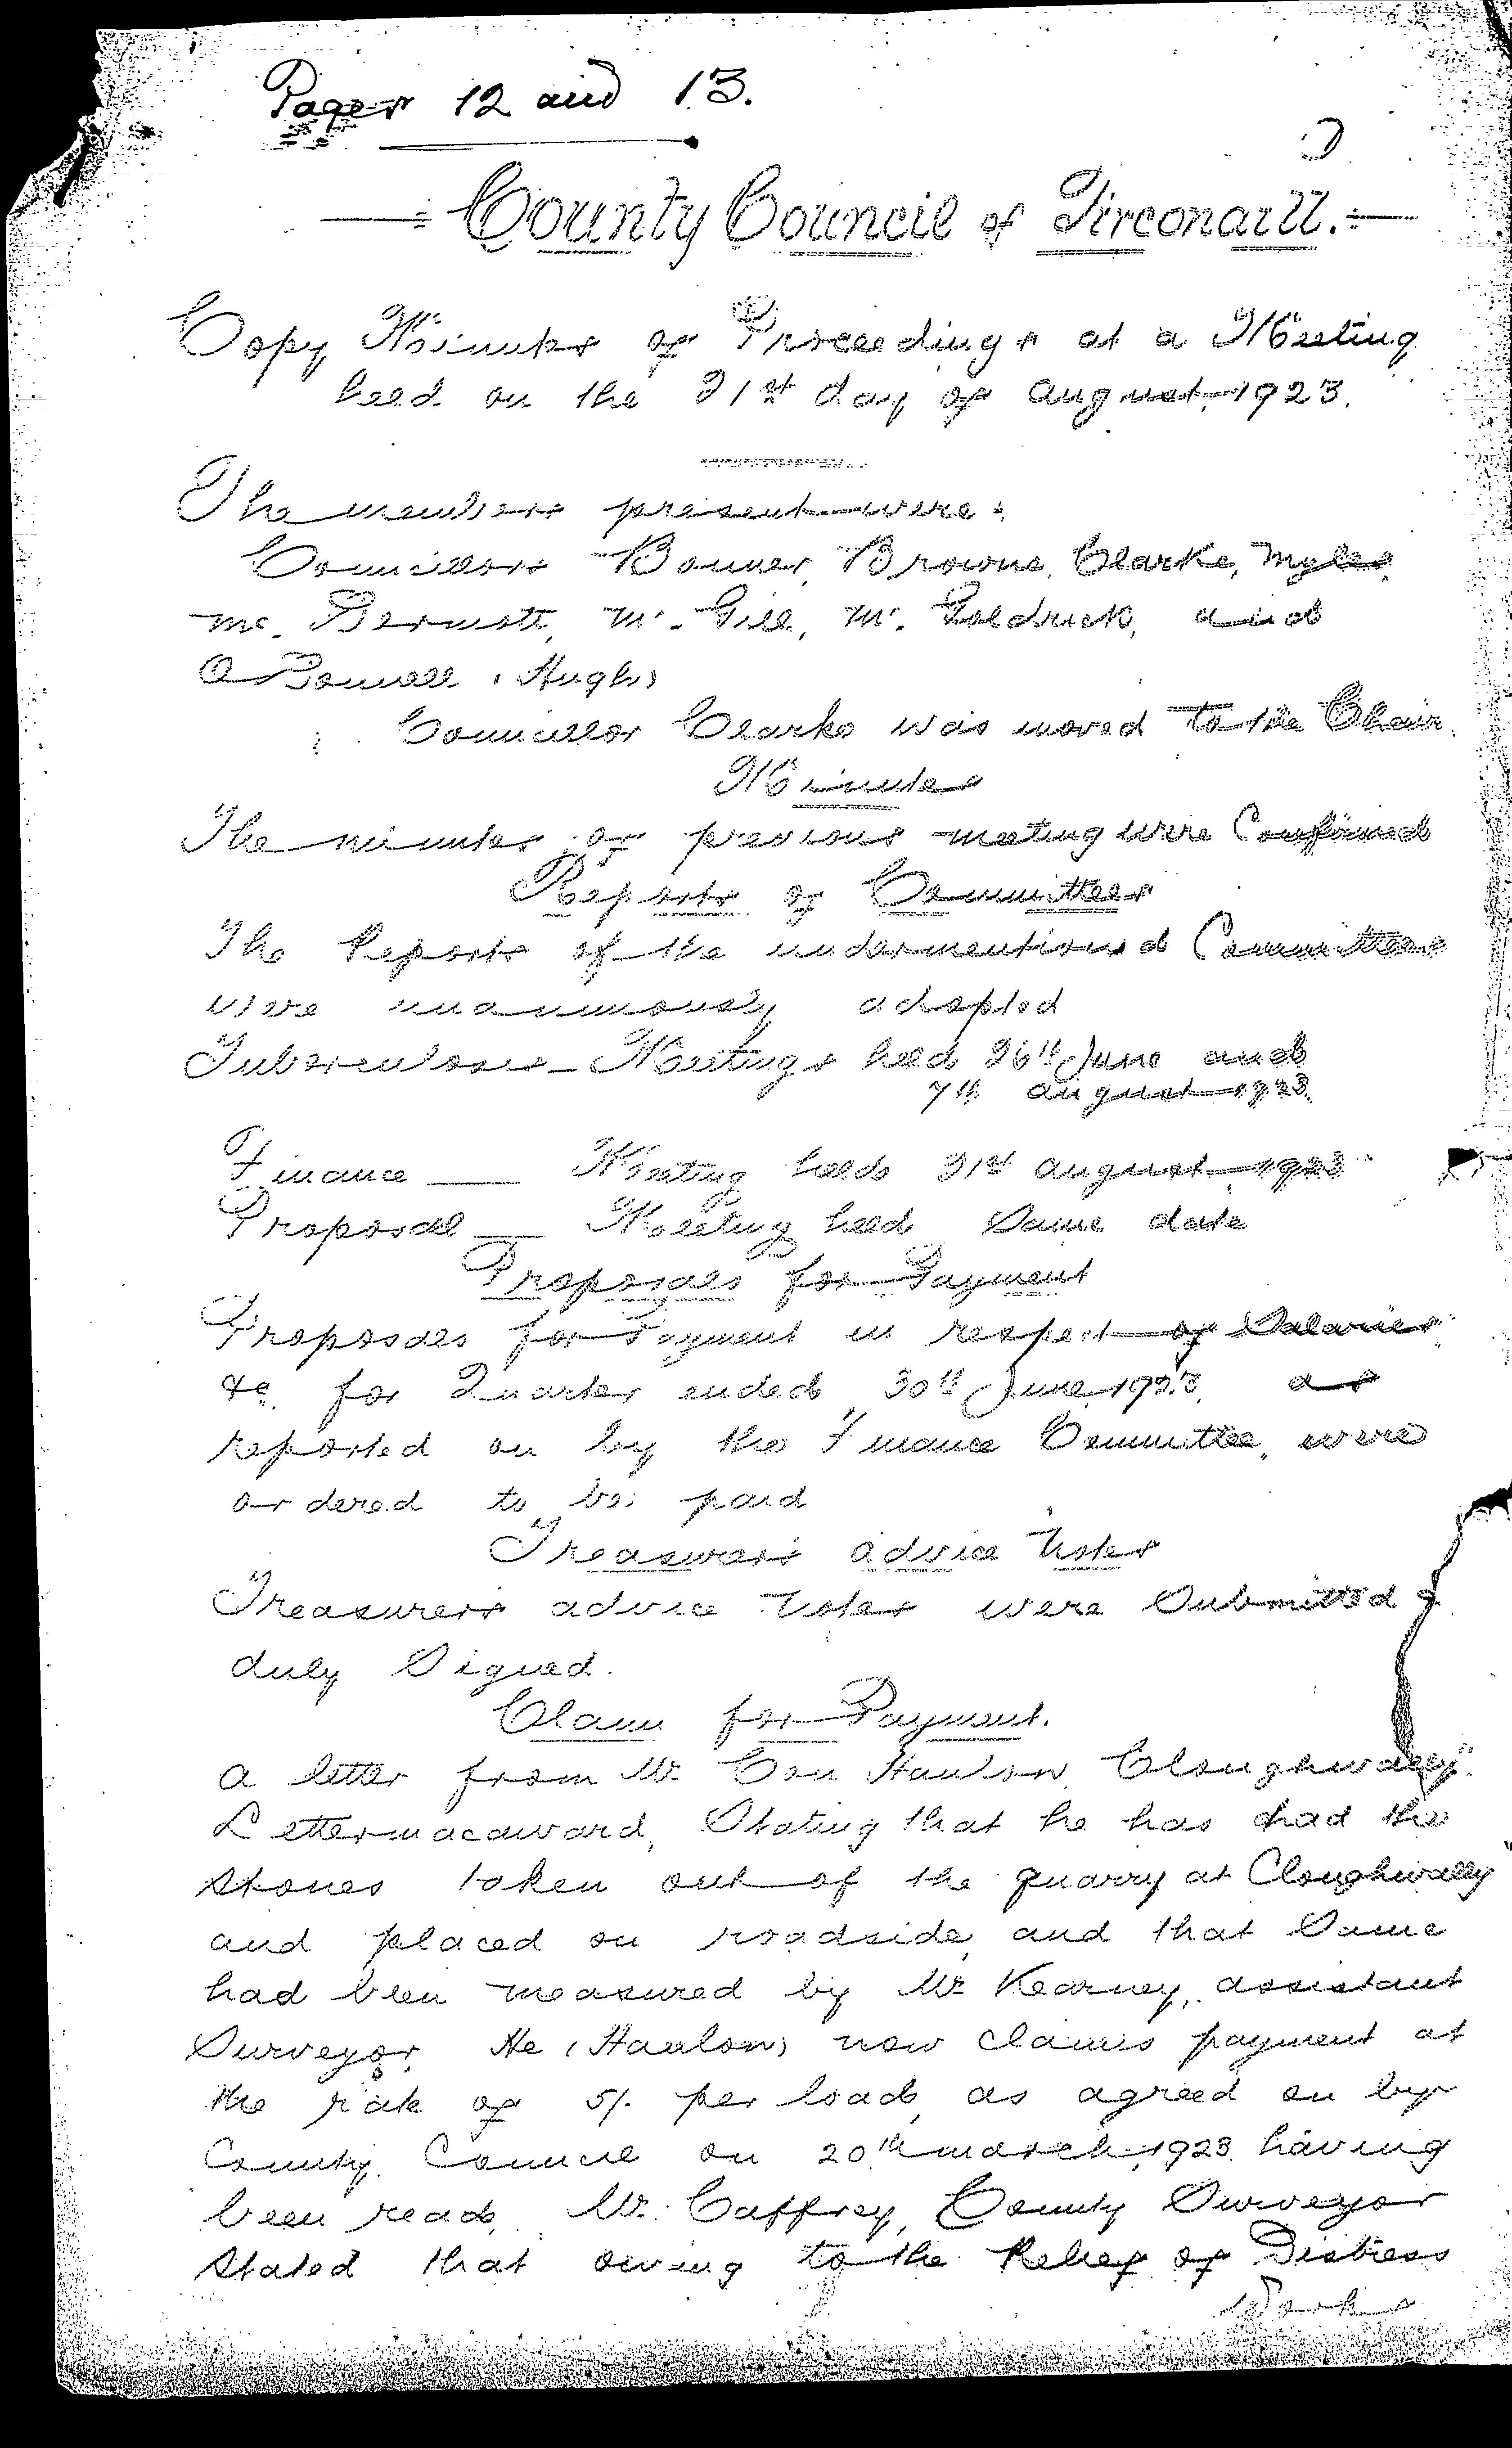 Pages 12 and 13.
County Council of Tirconaill.
Copy Minutes of Proceedings at a Meeting
held on the 21st day of August, 1923.
The members present were:
Councillors Bonner, Browne, Clarke, Myles,
McDermott, McGill, McGoldrick, and
O'Donnell (Hugh)
Councillor Clarke was moved to the Chair.
Minutes
The minutes of previous meeting were Confirmed
Reports of Committees
The Reports of the undermentioned Committees
were unanimously adopted
Tuberculosis - Meetings held 26th June and
7th August 1923.
Finance — Meeting held 21st August 1923
Proposal — Meeting held Same date
Proposals for Payment
Proposals for Payment in respect of Salaries
&c. for Quarter ended 30th June, 1923, as
reported on by the Finance Committee, were
ordered to be paid
Treasurers Advice Notes
Treasurers advice Notes were Submitted &
duly Signed.
Claim for Payment.
A letter from Mr. Con Hanlon, Cloughwally,
Lettermacaward, Stating that he has had the
stones taken out of the quarry at Cloughwally
and placed on roadside, and that Same
had been measured by Mr. Kearney, assistant
Surveyor. He (Hanlon) now claims payment at
the rate of 5/. per load, as agreed on by
County Council on 20th March, 1923. having
been read, Mr. Caffrey, County Surveyor
stated that owing to the Relief of Distress
Works